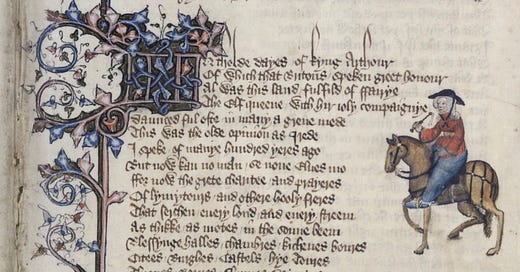 In tholde dayes of kyng Arthour
Of which that Britons speken greet honour
Al was this land fulfild of ffairye
The Elf queene with hir ioly compaignye
Daunced ful ofte in many a grene mede
This was the olde opinion as I rede
I speke of manye hundred yeres ago
But now kan no man se none Elues mo
ffor now the grete charitee and prayeres
Of lymytours and othere hooly freres
That serchen euery lond and euery streem
As thikke as motes in the sonne beem
Blessynge halles chambres kichenes boures
Citees Burghes Castels hye toures